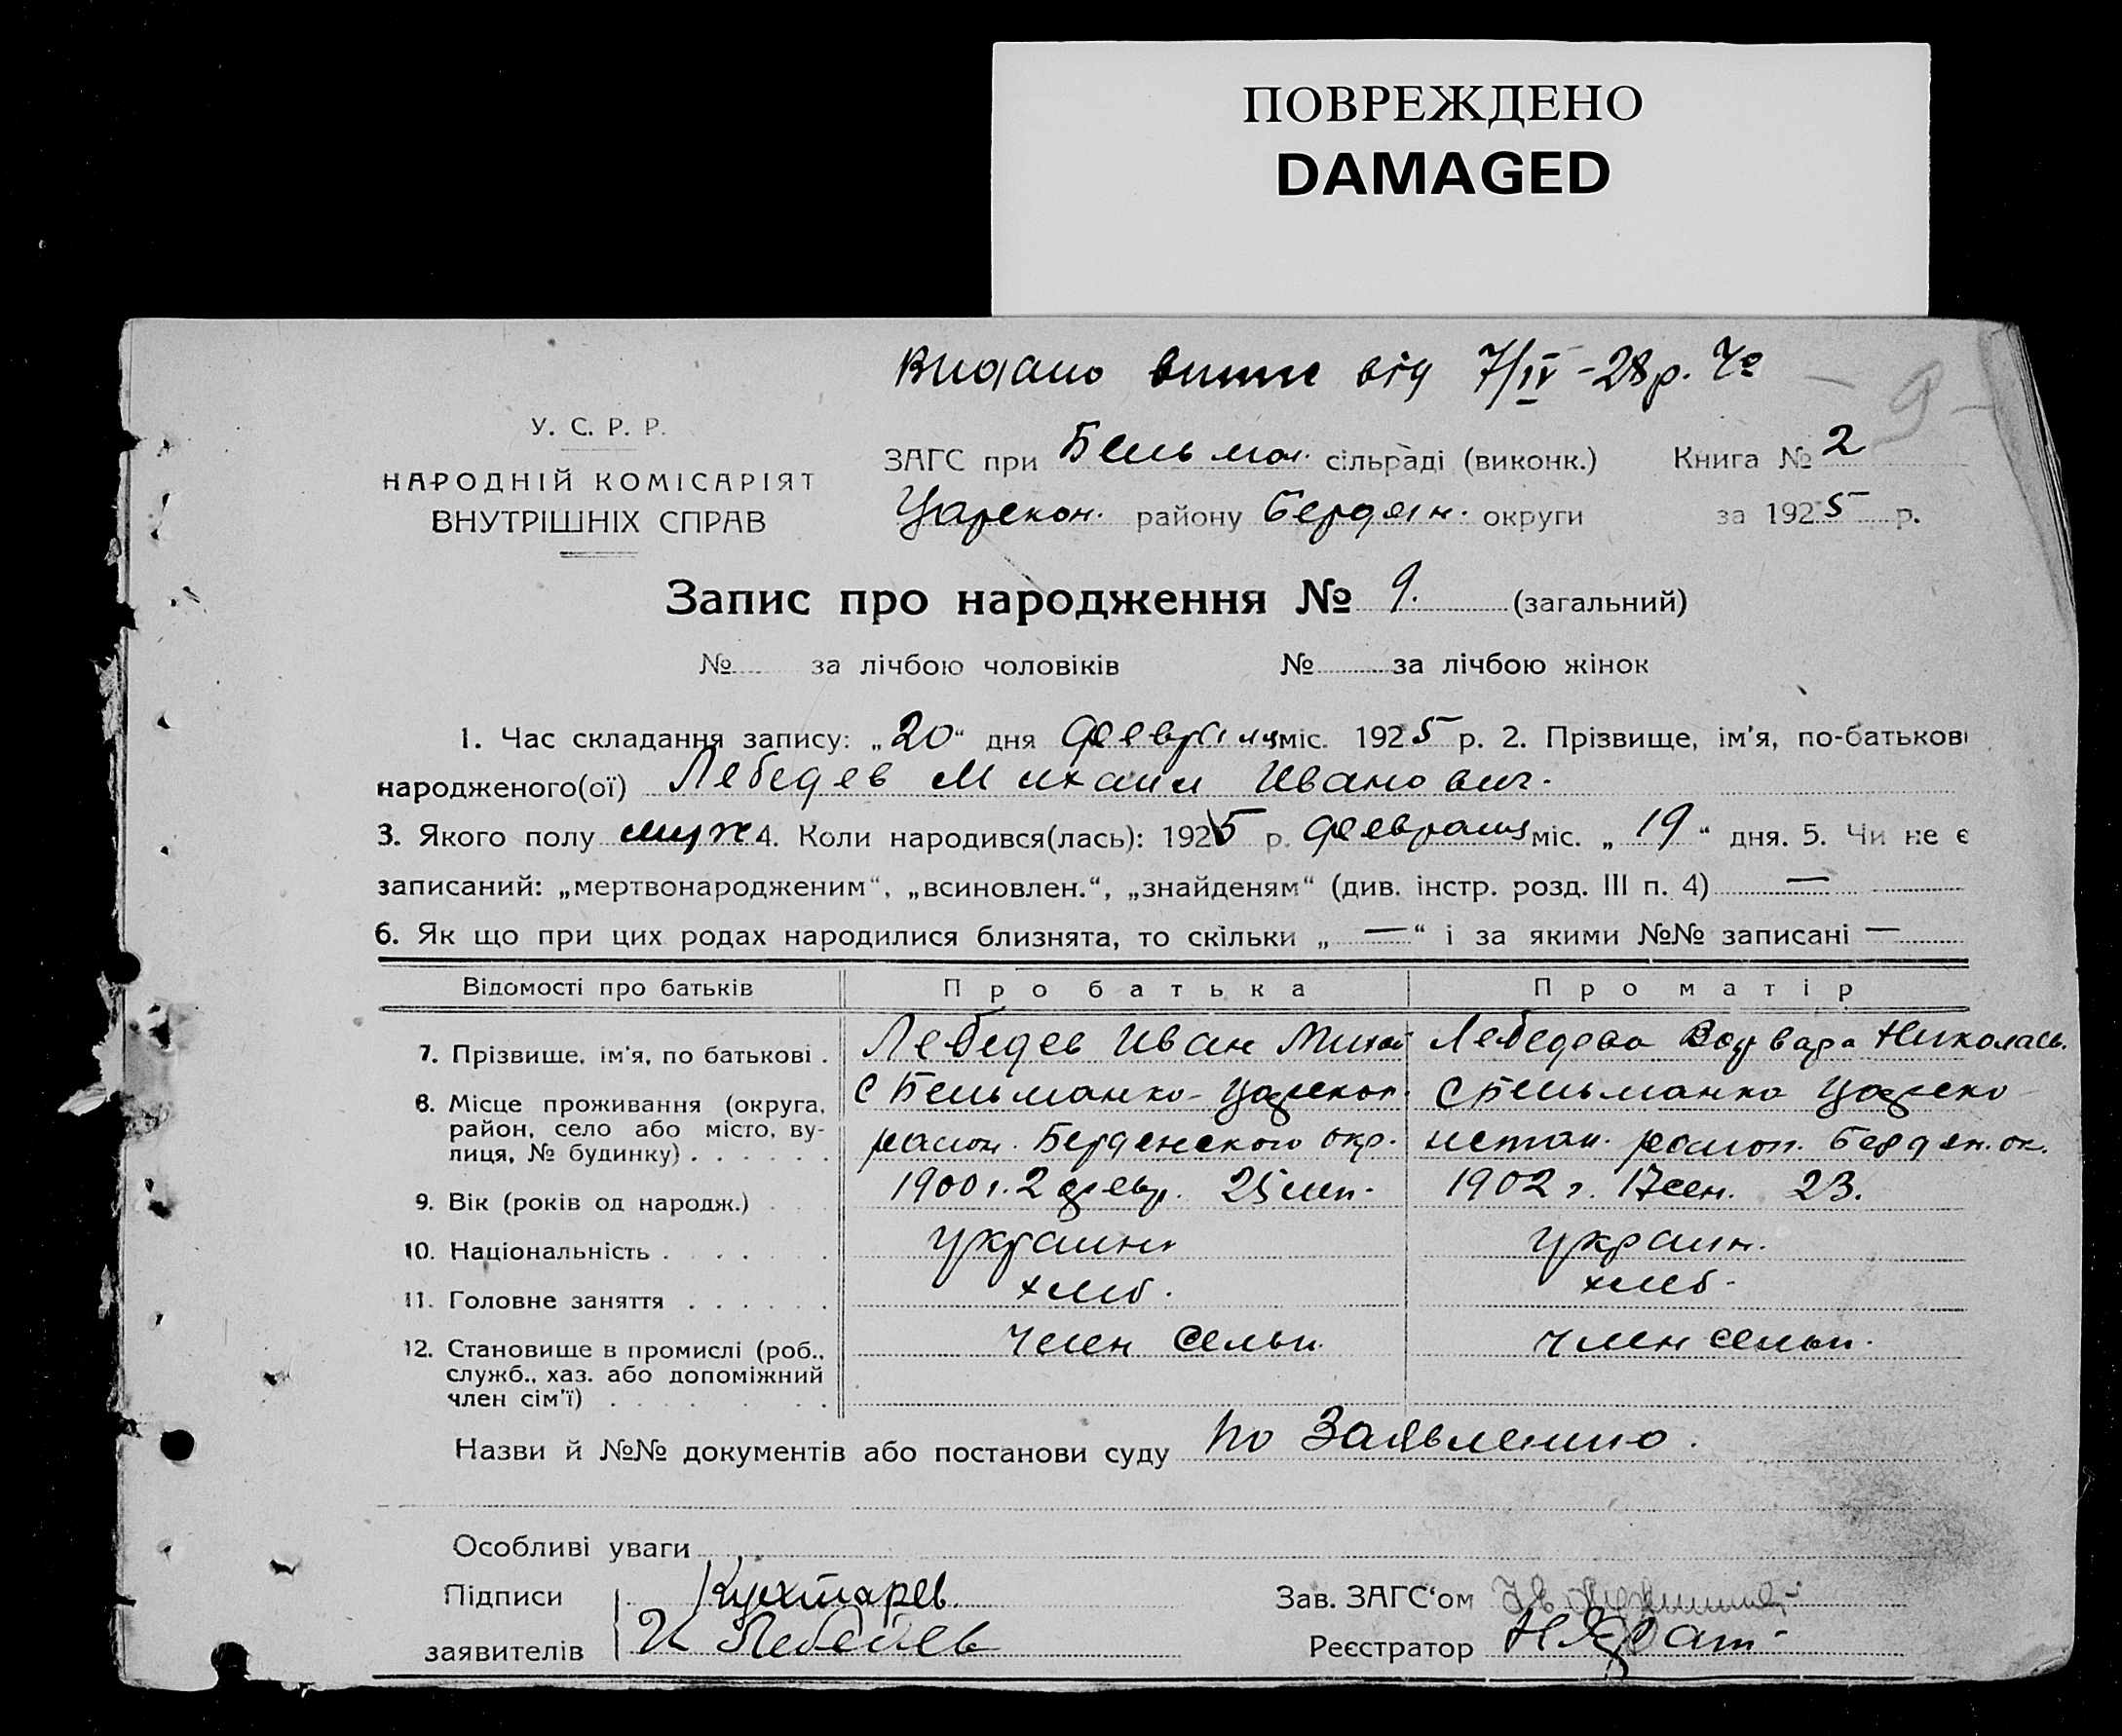 ПОВРЕЖДЕНО
DAMAGED
Видано випис від 7/IV-28р. Чо
- 9 -
У. С. Р. Р.
НАРОДНІЙ КОМІСАРІЯТ
ВНУТРІШНІХ СПРАВ
ЗАГС при Бельман. сільраді (виконк.) Книга № 2
Царекон. району Бердян. округи за 1925 р.
Запис про народження № 9. (загальний)
№ за лічбою чоловіків № за лічбою жінок
1. Час складання запису: „20“ дня февраля міс. 1925 р. 2. Прізвище, ім'я, по-батькові
народженого(ої) Лебедев Михаил Иванович.
3. Якого полу муж 4. Коли народився(лась): 1925 р. февраля міс. „19“ дня. 5. Чи не є
записаний: „мертвонародженим“, „всиновлен.“, „знайденям“ (див. інстр. розд. III п. 4) —
6. Як що при цих родах народилися близнята, то скільки „—“ і за якими №№ записані —
Відомості про батьків Про батька Про матір
7. Прізвище, ім'я, по батькові . Лебедев Иван Михай Лебедева Варвара Николаев.
8. Місце проживання (округа, с Бельманка Царекон. с Бельманка Цареко-
район, село або місто, ву-
лиця, № будинку) . . . . . . район. Берденского окр. нстан. район. Бердян. ок.
9. Вік (років од народж.) 1900 г. 2 февр. 25 1902 г. 17 сен. 23.
10. Національність . . . . . . украин. украин.
11. Головне заняття . . . . . . хлеб. хлеб.
12. Становище в промислі (роб., член семьи. член семьи.
служб., хаз. або допоміжний
член сім'ї) . . . . . . .
Назви й №№ документів або постанови суду по Заявлению.
Особливі уваги
Підписи Кухтарев. Зав. ЗАГС'ом
заявителів И Лебедев Реєстратор